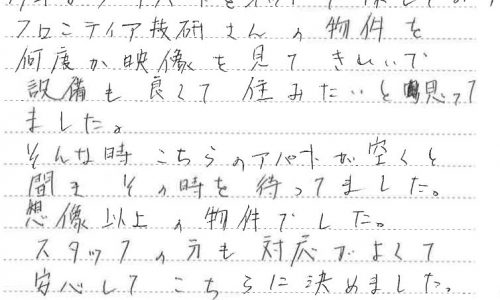 フロンティア技研さんの物件を
何度か映像を見てきれいで
設備も良くて住みたいと思って
ました。
そんな時こちらのアパートが空くと
聞き その時を待ってました。
想像以上の物件でした。
スタッフの方も対応がよくて
安心してこちらに決めました。